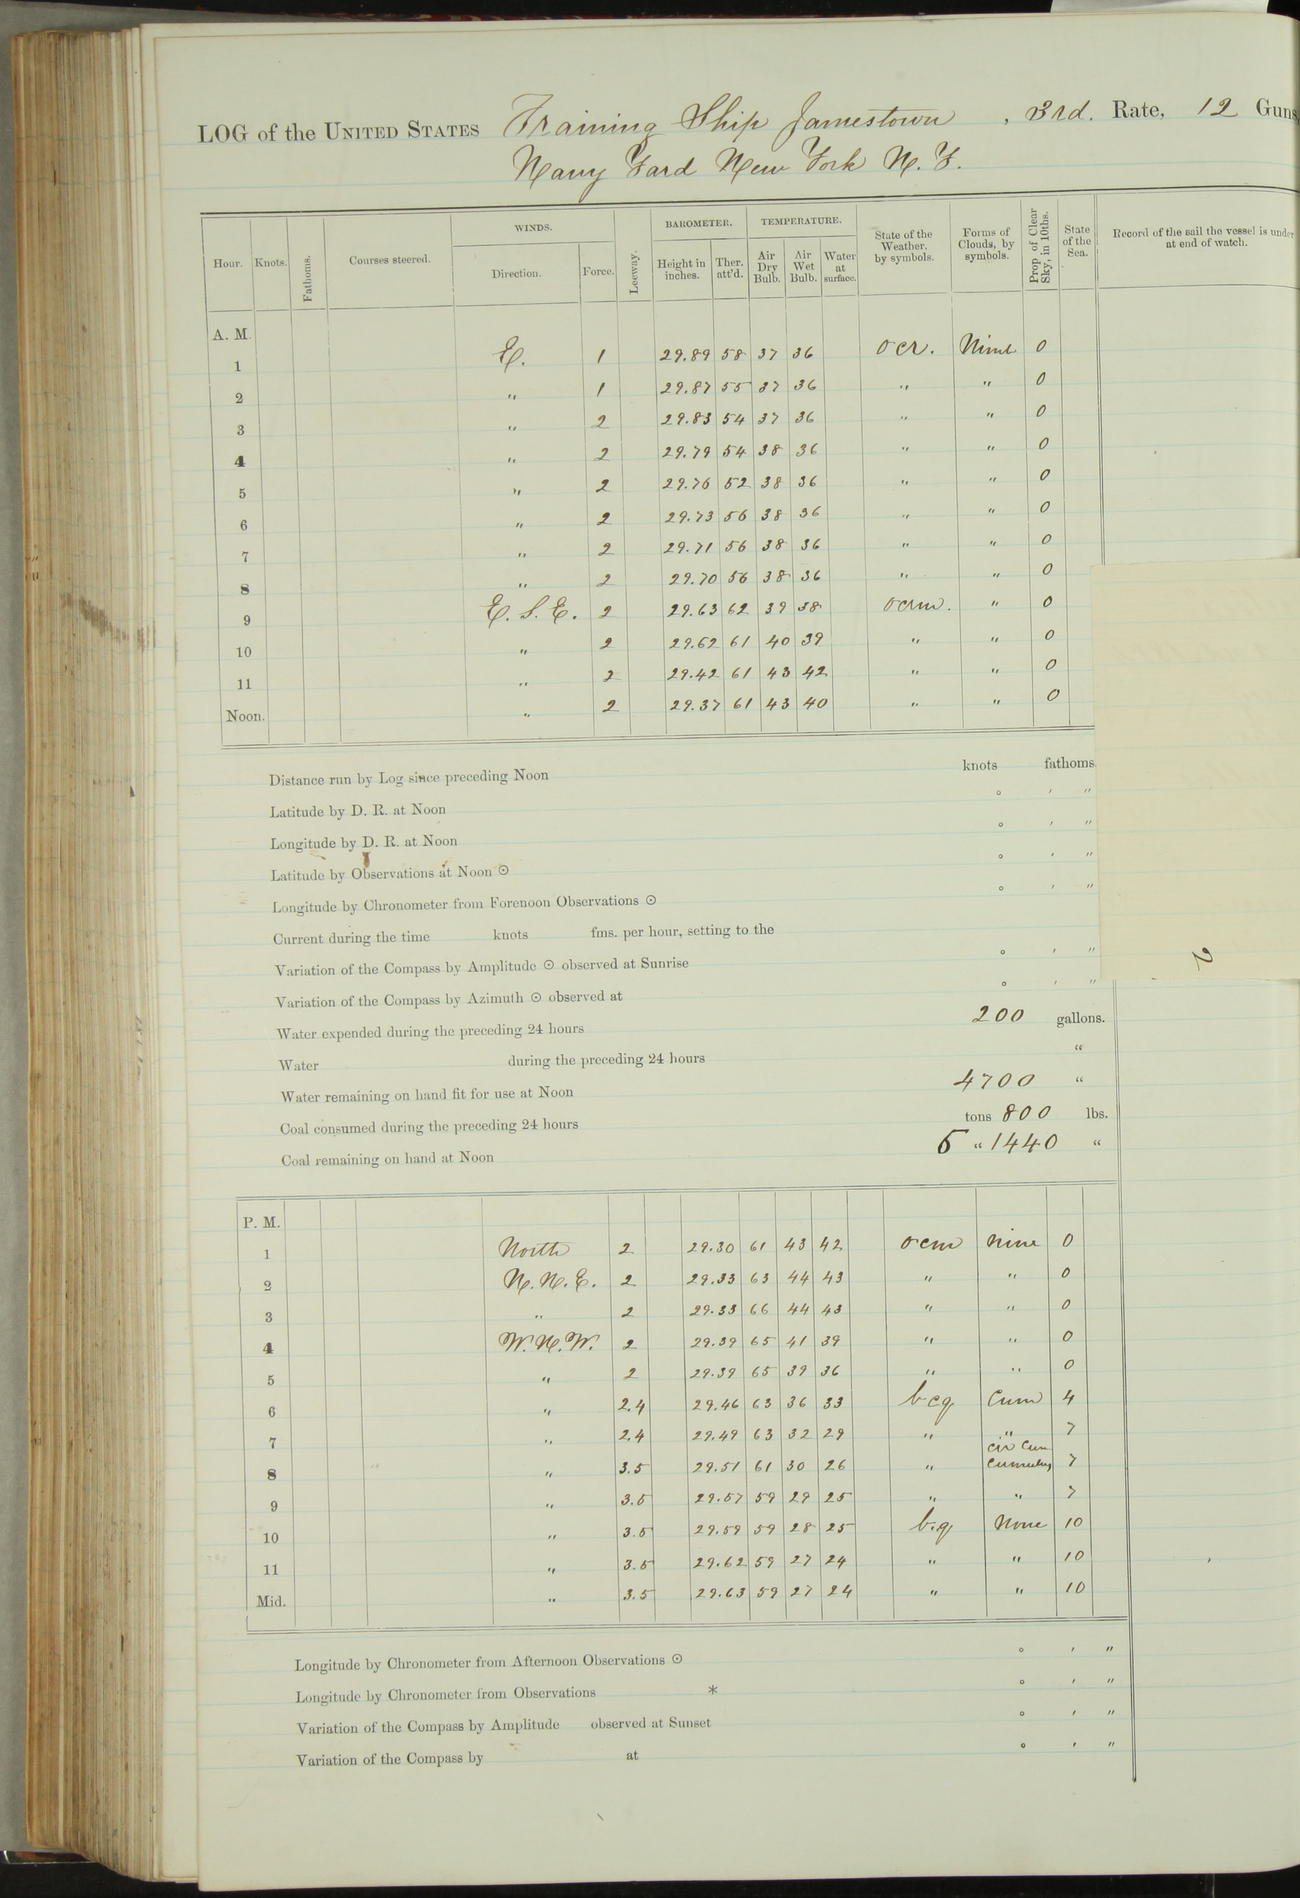 LOG of the UNITED STATES Training Ship Jamestown , 3rd. Rate, 12 Guns
Navy Yard New York N.Y.
Hour. Knots. Fathoms. Courses steered. WINDS. Direction. Force. Leeway. BAROMETER. Height in inches. Ther. att'd. TEMPERATURE. Air Dry Bulb. Air Wet Bulb. Water at surface. State of the Weather. by symbols. Forms of Clouds, by symbols. Prop of Clear Sky, in 10ths. State of the Sea. Record of the sail the vessel is under at end of watch.
A. M.
1 E. 1 29.89 58 37 36 ocr. Nimb 0
2 " 1 29.87 55 37 36 " " 0
3 " 2 29.83 54 37 36 " " 0
4 " 2 29.79 54 38 36 " " 0
5 " 2 29.76 52 38 36 " " 0
6 " 2 29.73 56 38 36 " " 0
7 " 2 29.71 56 38 36 " " 0
8 " 2 29.70 56 38 36 " " 0
9 E. S. E. 2 29.63 62 39 38 ocm. " 0
10 " 2 29.62 61 40 39 " " 0
11 " 2 29.42 61 43 42 " " 0
Noon. " 2 29.37 61 43 40 " " 0
Distance run by Log since preceding Noon knots fathoms.
Latitude by D. R. at Noon ° ′ ″
Longitude by D. R. at Noon ° ′ ″
Latitude by Observations at Noon ⊙ ° ′ ″
Longitude by Chronometer from Forenoon Observations ⊙ ° ′ ″
Current during the time knots fms. per hour, setting to the
Variation of the Compass by Amplitude ⊙ observed at Sunrise ° ′ ″
Variation of the Compass by Azimuth ⊙ observed at ° ′ ″
Water expended during the preceding 24 hours 200 gallons.
Water during the preceding 24 hours "
Water remaining on hand fit for use at Noon 4700 "
Coal consumed during the preceding 24 hours tons 800 lbs.
Coal remaining on hand at Noon 5 " 1440 "
2
P. M.
1 North 2 29.30 61 43 42 ocm Nim 0
2 N. N. E. 2 29.33 63 44 43 " " 0
3 " 2 29.33 66 44 43 " " 0
4 W. N. W. 2 29.39 65 41 39 " " 0
5 " 2 29.39 65 39 36 " " 0
6 " 2.4 29.46 63 36 33 bcq Cum 4
7 " 2.4 29.49 63 32 29 " " 7
8 " 3.5 29.51 61 30 26 " Cir Cum Cumulus 7
9 " 3.5 29.57 59 29 25 " " 7
10 " 3.5 29.59 59 28 25 b.q None 10
11 " 3.5 29.62 59 27 24 " " 10
Mid. " 3.5 29.63 59 27 24 " " 10
Longitude by Chronometer from Afternoon Observations ⊙ ° ′ ″
Longitude by Chronometer from Observations * ° ′ ″
Variation of the Compass by Amplitude observed at Sunset ° ′ ″
Variation of the Compass by at ° ′ ″